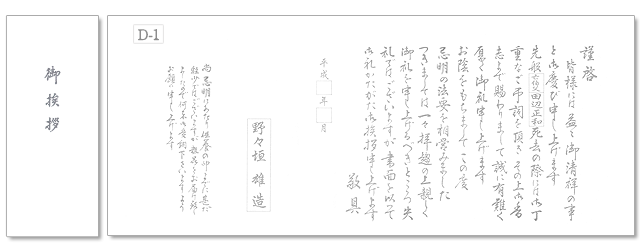 御挨拶
D-1
謹啓
皆様には益々御清祥の事
とお慶び申し上げます
先般 父田辺正和死去の際には御丁
重なご弔詞を頂き その上御香
志まで賜わりまして誠に有難く
厚く御礼申し上げます
お陰をもちましてこの度
忌明の法要を相営みました
つきましては一々拝趨の上親しく
御礼を申し上げるべきところ失
礼ではございますが書面を以て
御礼かたがた御挨拶申し上げます
敬具
平成 年 月
野々垣 雄造
尚 忌明にあたり供養の
お願い申し上げます